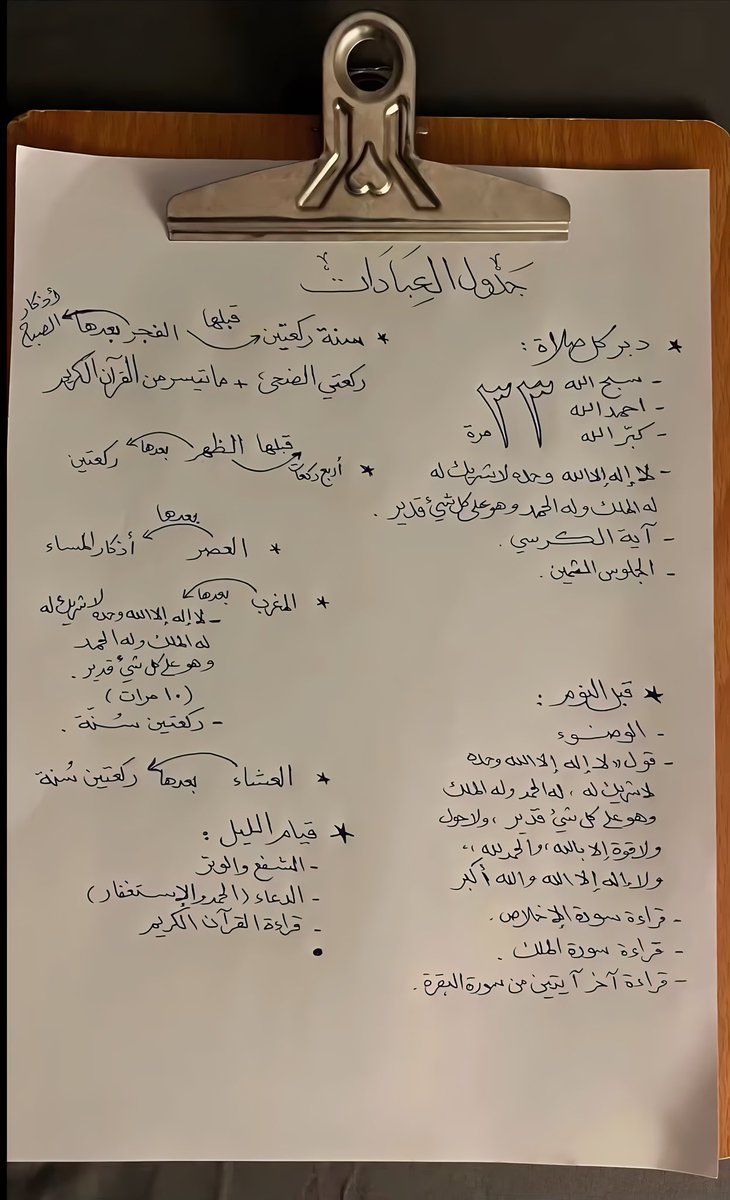 جَدْوَل العِبَادَات
★ دبر كل صلاة :
- سبح الله
- احمد الله
- كبّر الله
٣٣ مرة
- لا إله إلا الله وحده لا شريك له
له الملك وله الحمد وهو على كل شيءٍ قدير .
- آية الكرسي .
- الجلوس الثمين .
★ قبل النوم :
- الوضوء
- قول " لا إله إلا الله وحده
لا شريك له ، له الحمد وله الملك
وهو على كل شيء قدير ، ولا حول
ولا قوة إلا بالله ، والحمد لله ،،
ولا إله إلا الله والله أكبر
- قراءة سورة الإخلاص .
- قراءة سورة الملك .
- قراءة آخر آيتين من سورة البقرة .
★ سنة ركعتين قبلها الفجر بعدها أذكار الصبح
ركعتي الضحى + ما تيسر من القرآن الكريم
★ أربع ركعات قبلها الظهر بعدها ركعتين
★ العصر بعدها أذكار المساء
★ المغرب بعدها
- لا إله إلا الله وحده لا شريك له
له الملك وله الحمد
وهو على كل شيء قدير .
(١٠ مرات)
- ركعتين سُنّة .
★ العشاء بعدها ركعتين سُنة
★ قيام الليل :
- الشفع والوتر
- الدعاء (الحمد والإستغفار)
- قراءة القرآن الكريم